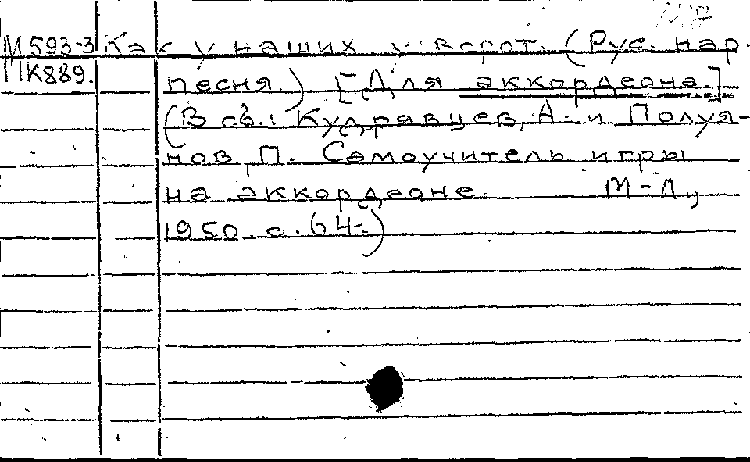 М593-3 Как у наших у ворот. (Рус. нар.
К889. песня.) [Для аккордеона.]
(В сб.: Кудрявцев, А. и Полуя-
нов П. Самоучитель игры
на аккордеоне. М-Л,
1950. с. 64.)